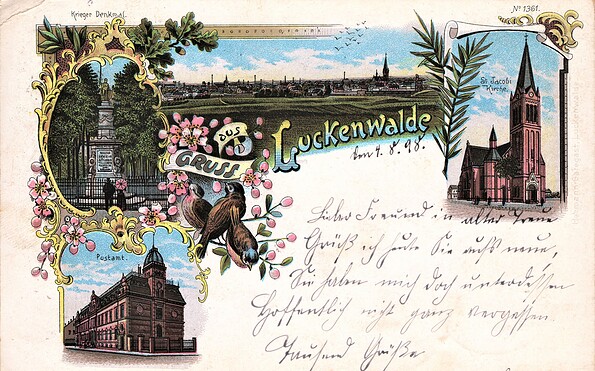 Krieger Denkmal.
No 1361.
St. Jacobi
Kirche.
Gruss
aus
Luckenwalde
den 4. 8. 98.
Lieber Freund in alter Treue
Grüß ich heute Sie aufs neue,
Sie haben mich doch unterdessen
Hoffentlich nicht ganz vergessen
Tausend Grüße
Postamt.